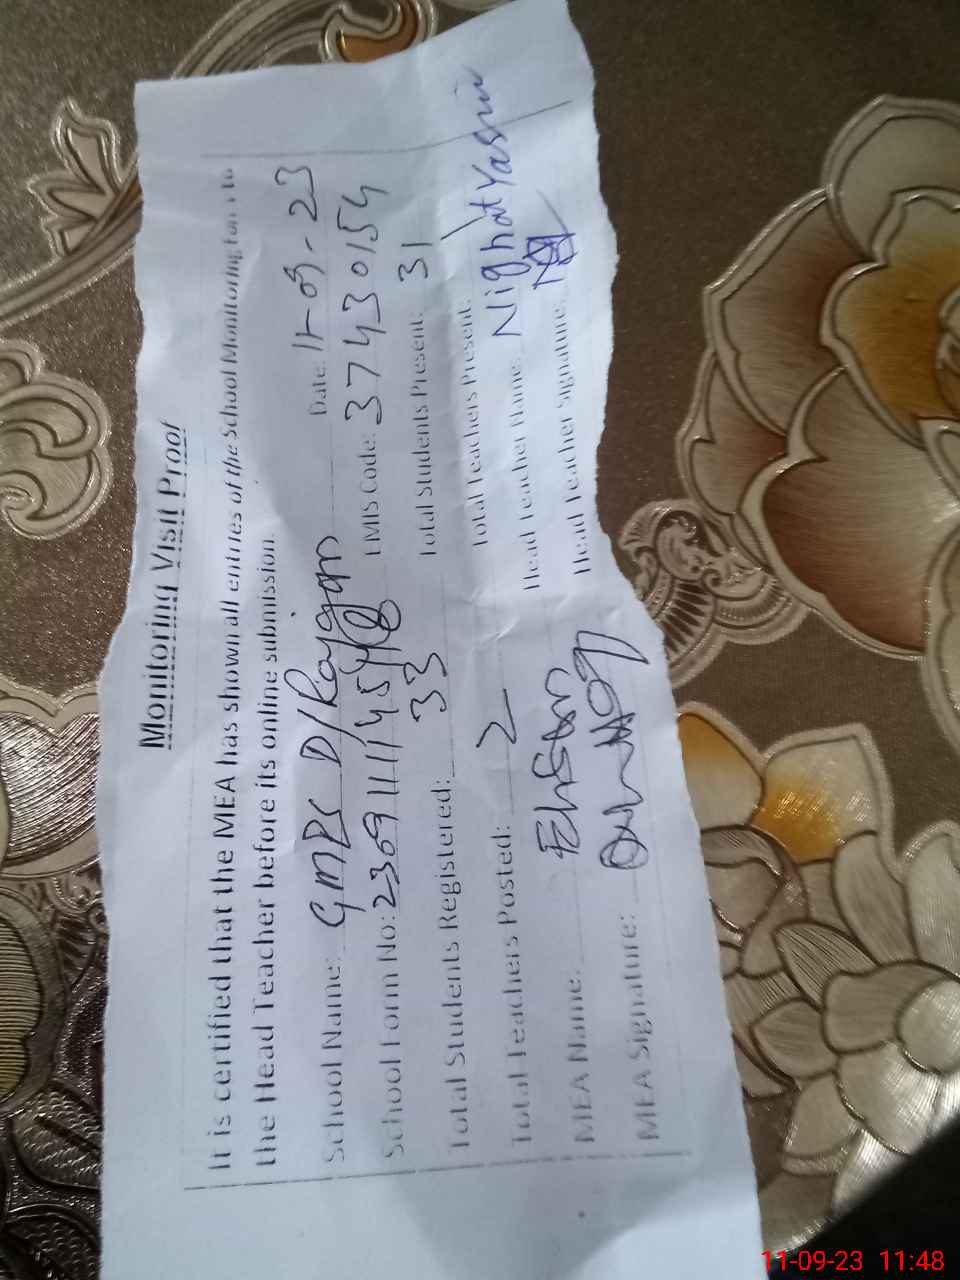 Monitoring Visit Proof
It is certified that the MEA has shown all entries of the School Monitoring Form to
the Head Teacher before its online submission.
School Name: GMPS D/ Date: 11-09-23
School Form No: EMIS Code: 37430154
Total Students Registered: 33 Total Students Present: 31
Total Teachers Posted: 2 Total Teachers Present: 1
MEA Name: Ehsan Head Teacher Name: Nighat Yasmin
MEA Signature: Head Teacher Signature:
11-09-23 11:48